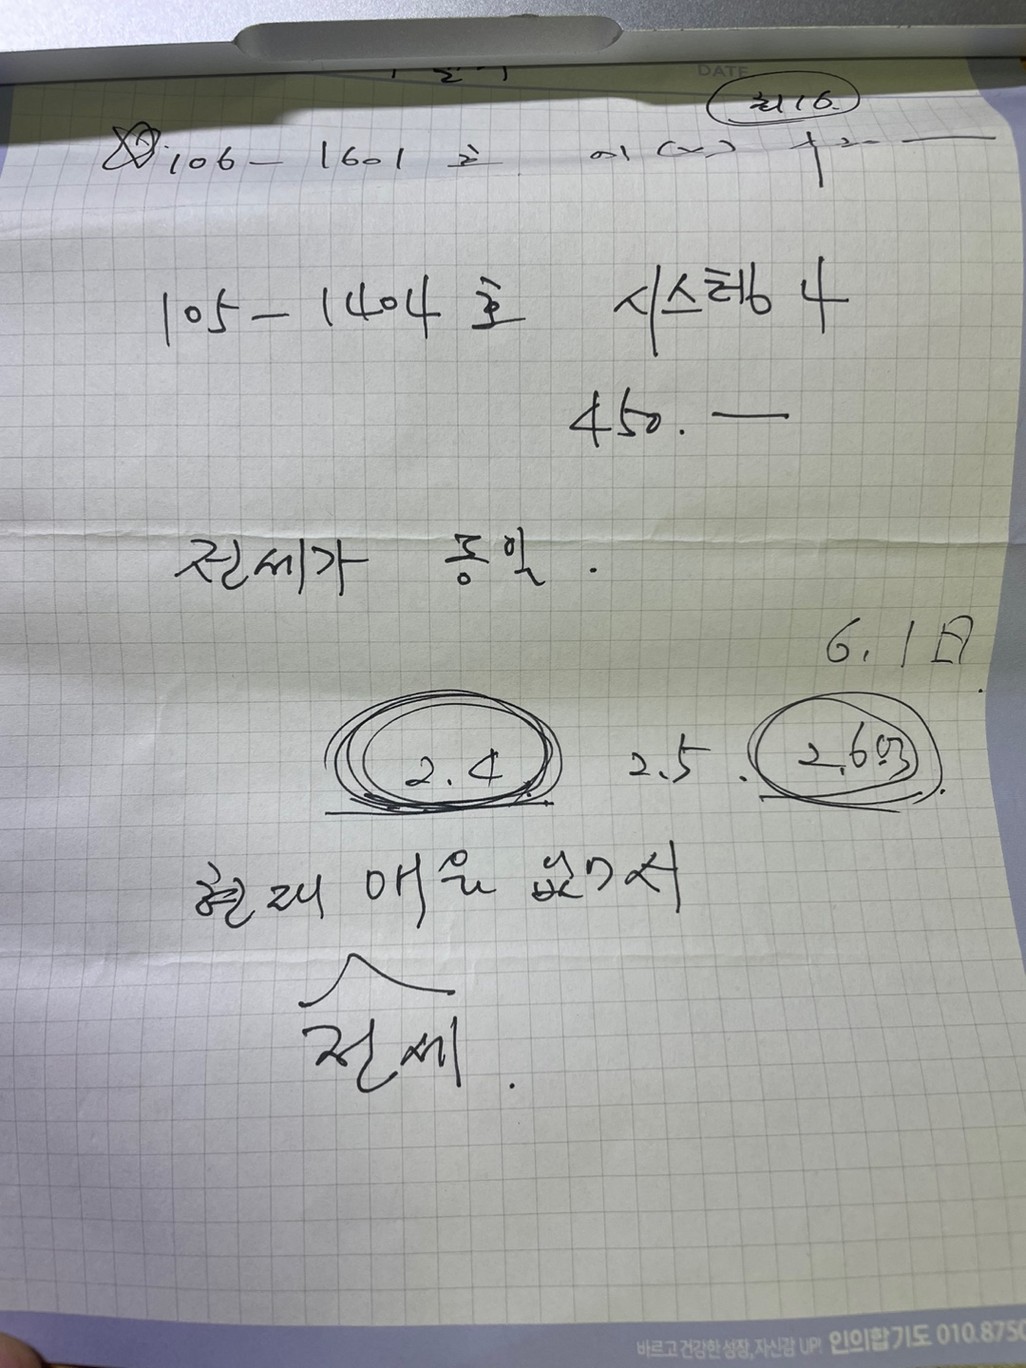 DATE
106 - 1601 호
105 - 1404 호 시스템 4
450. —
전세가 동일.
6. 1日.
2.4 2.5 . 2.6억.
현재 매물 없어서
전세.
바르고 건강한 성장, 자신감 UP! 인의합기도 010.8750